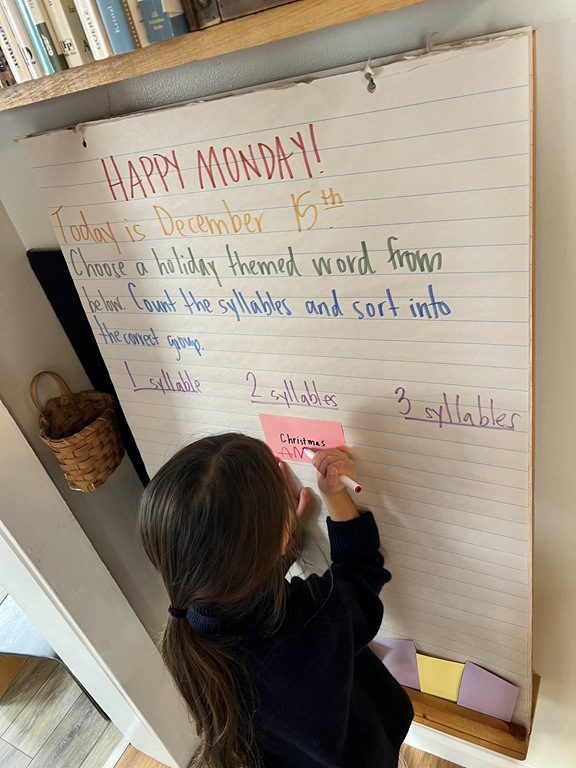 HAPPY MONDAY!
Today is December 15th
Choose a holiday themed word from
below. Count the syllables and sort into
the correct group.
1 syllable 2 syllables 3 syllables
Christmas
AN